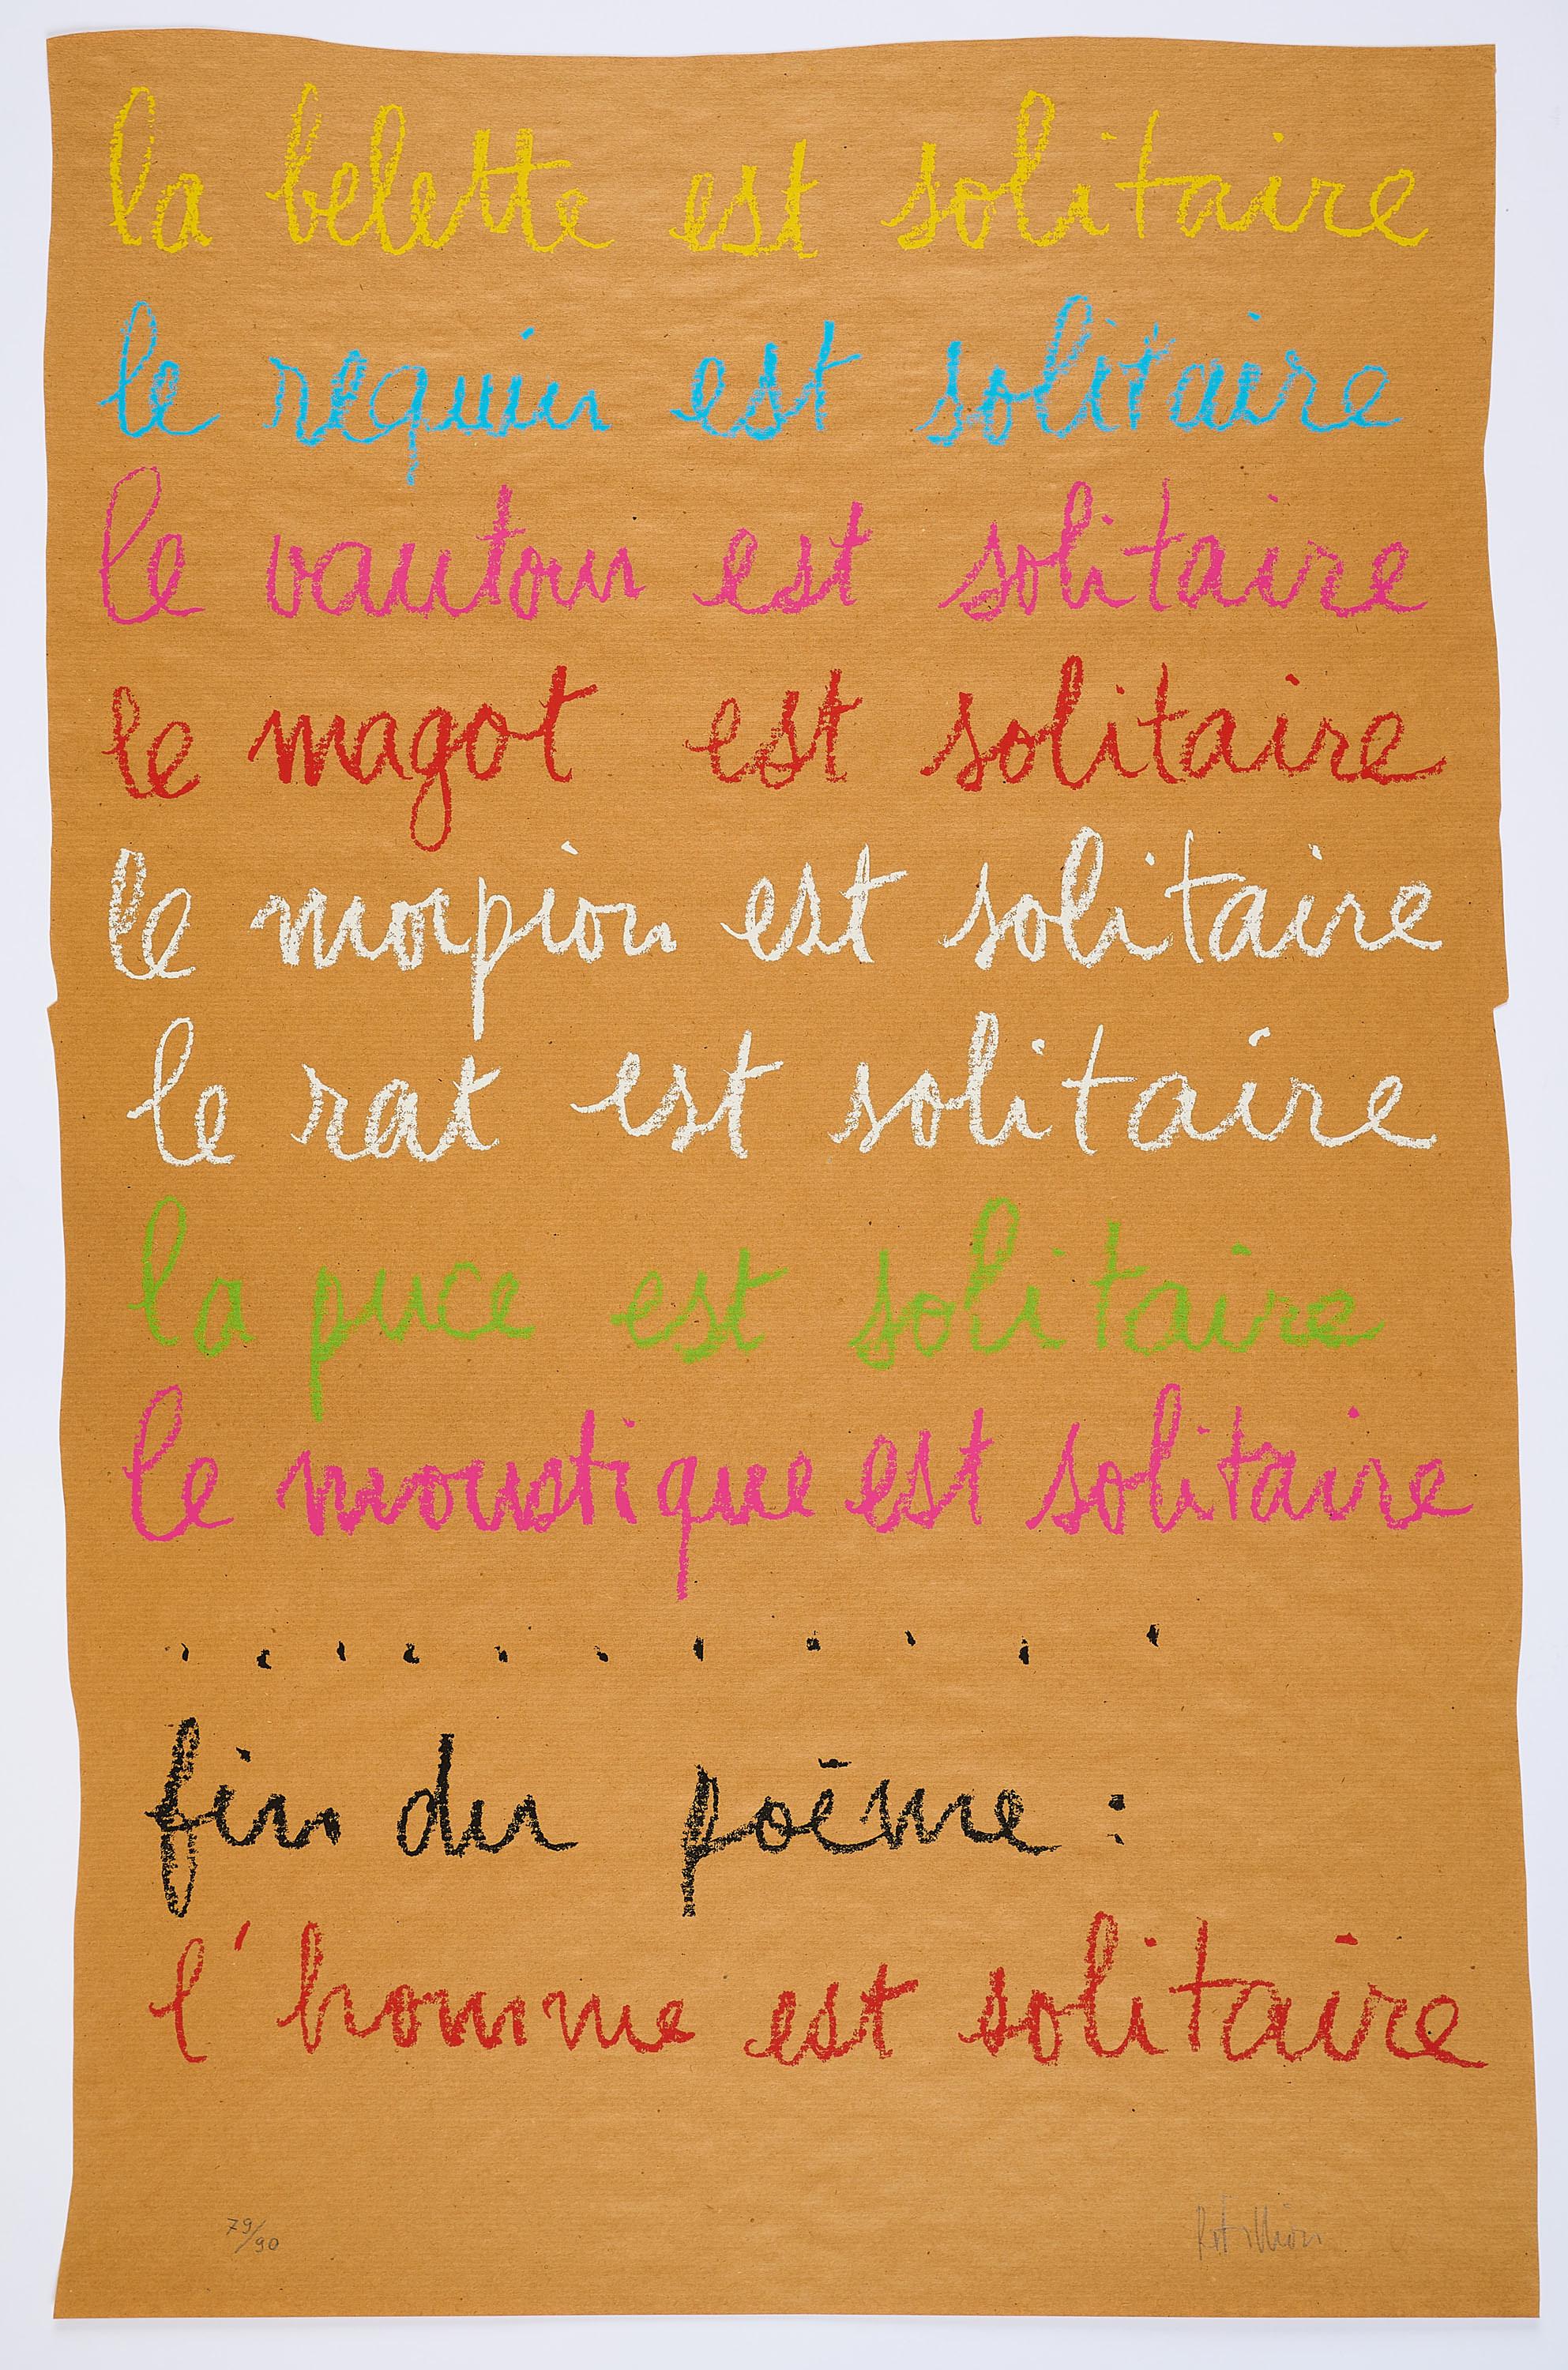 la belette est solitaire
le requin est solitaire
le vautour est solitaire
le magot est solitaire
le morpion est solitaire
le rat est solitaire
la puce est solitaire
le moustique est solitaire
. . . . . . . . . . . .
fin du poème :
l'homme est solitaire
79/90